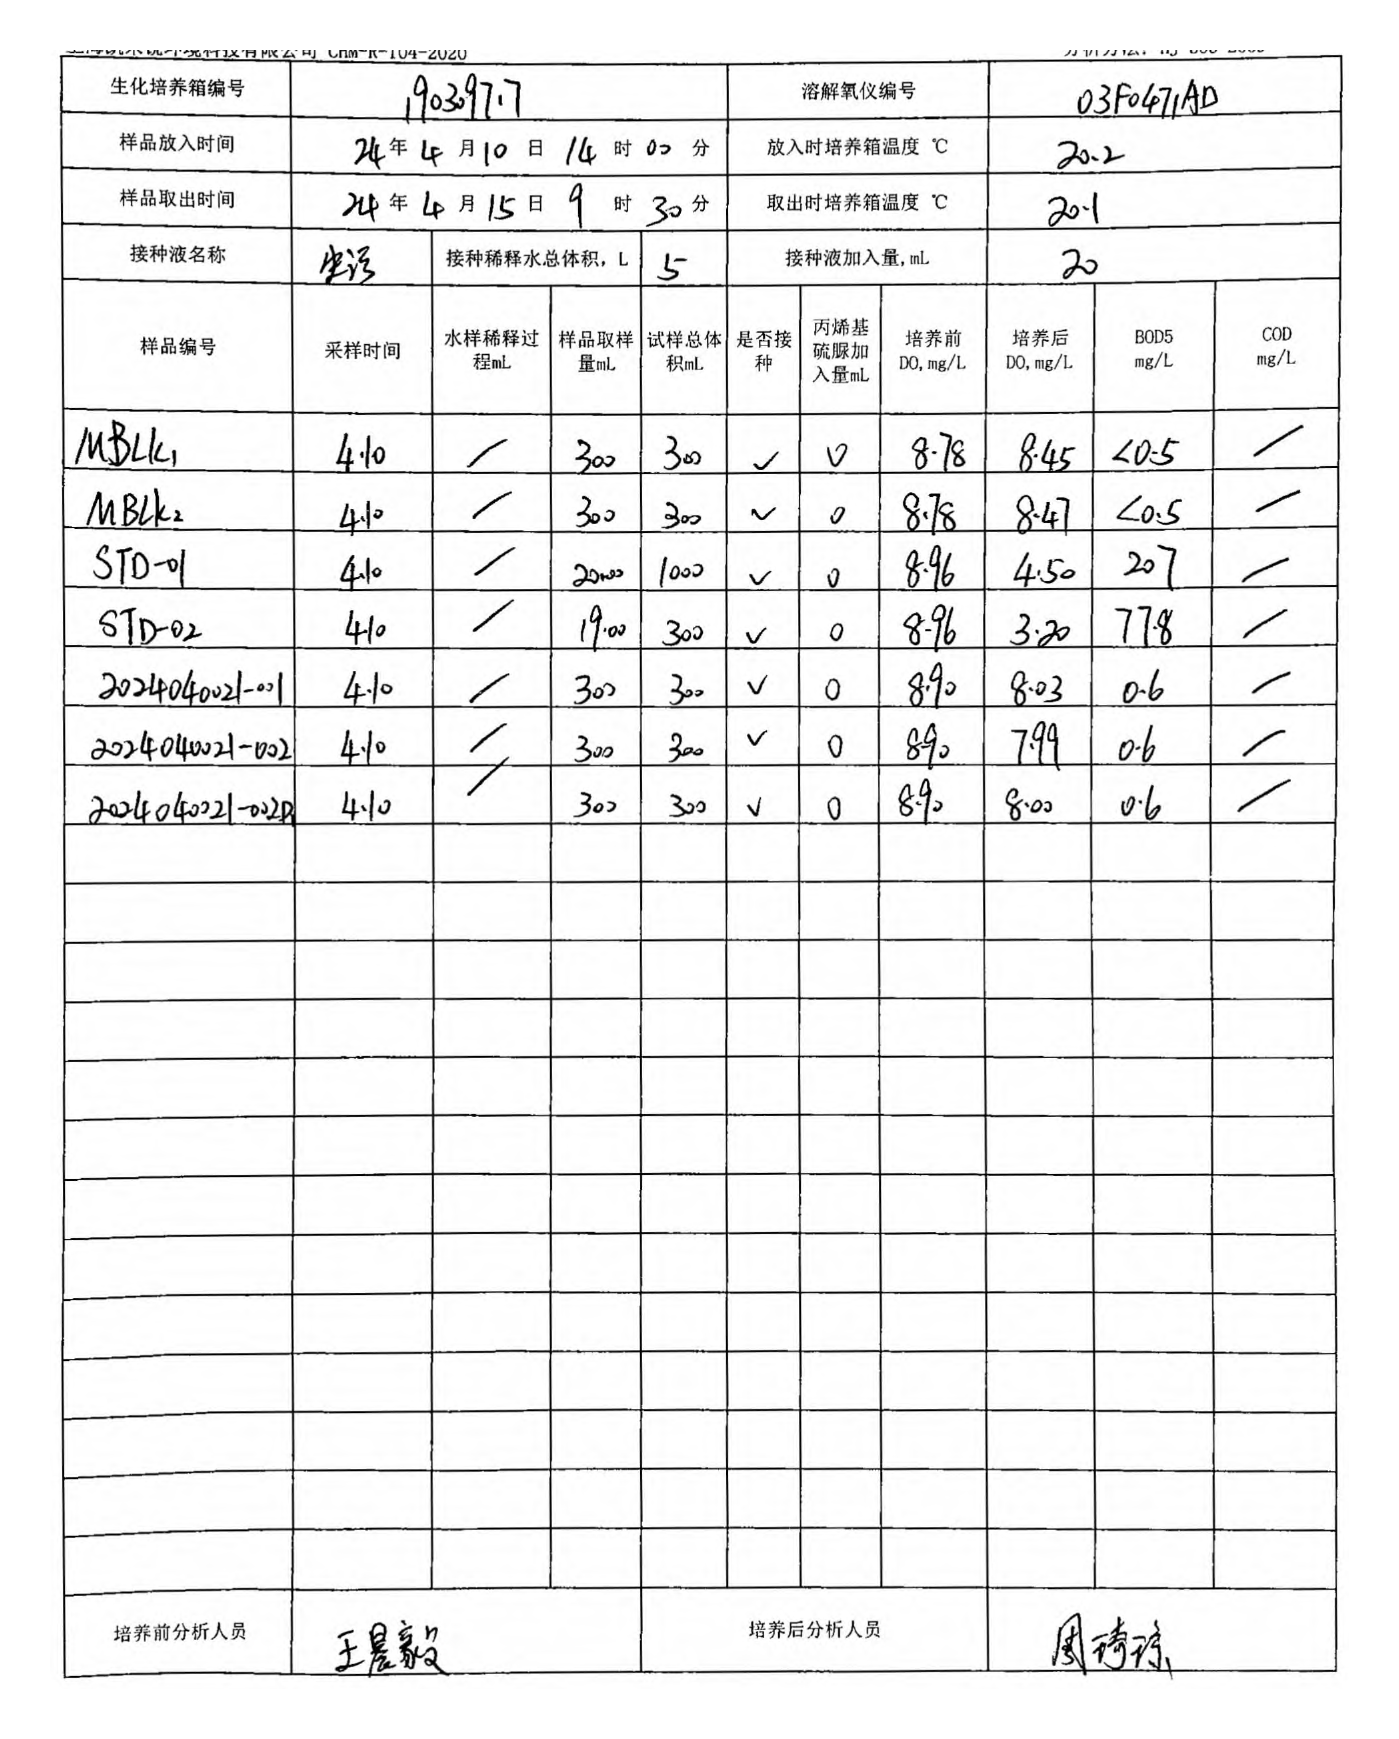 CHM-R-104-2020
生化培养箱编号 1903097.7 溶解氧仪编号 03F0471AD
样品放入时间 24年4月10日14时00分 放入时培养箱温度 ℃ 20.2
样品取出时间 24年4月15日9时30分 取出时培养箱温度 ℃ 20.1
接种液名称 接种稀释水总体积, L 5 接种液加入量, mL 20
样品编号 采样时间 水样稀释过程mL 样品取样量mL 试样总体积mL 是否接种 丙烯基硫脲加入量mL 培养前DO, mg/L 培养后DO, mg/L BOD5 mg/L COD mg/L
MBLK1 4.10 / 300 300 ✓ 0 8.78 8.45 <0.5 /
MBLK2 4.10 / 300 300 ✓ 0 8.78 8.47 <0.5 /
STD-01 4.10 / 20.00 1000 ✓ 0 8.96 4.50 207 /
STD-02 4.10 / 19.00 300 ✓ 0 8.96 3.20 77.8 /
2024040021-001 4.10 / 300 300 ✓ 0 8.90 8.03 0.6 /
2024040021-002 4.10 / 300 300 ✓ 0 8.90 7.99 0.6 /
2024040021-002P 4.10 / 300 300 ✓ 0 8.90 8.00 0.6 /
培养前分析人员 王晨毅 培养后分析人员 周琦琼